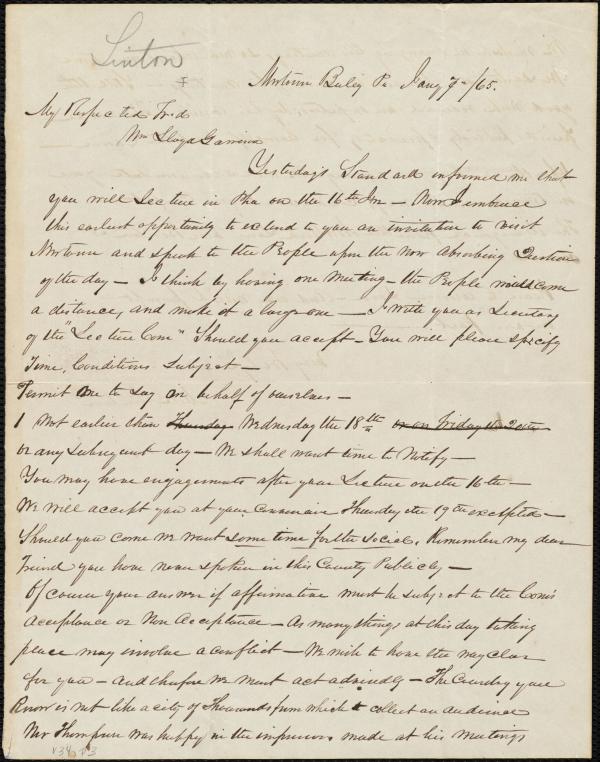 Linton
Newtown Bucks Pa Jany 7th /65.
My Respected Frd
Wm Lloyd Garrison
Yesterday's Standard informed me that
you will Lecture in Pha on the 16th In — Now I embrace
this earliest opportunity to extend to you an invitation to visit
Newtown and speak to the People upon the now absorbing Question
of the day — I think by having one Meeting — the People would come
a distance, and make it a large one — I write you as Secretary
of the "Lecture Com" Should you accept — You will please specify
Time, Conditions Subject —
Permit me to say on behalf of ourselves —
1 Not earlier than Thursday Wednesday the 18th or on Friday the 20th
or any subsequent day — We shall want time to Notify —
You may have engagements after your Lecture on the 16th —
We will accept you at your convenience Thursday the 19th excepted —
Should you come we want some time for the social, Remember my dear
Friend you have never spoken in this County Publicly —
Of course your answer if affirmative must be subject to the Com's
acceptance or Non acceptance — As many things at this day taking
place may involve a conflict — We wish to have the way clear
for you — and therefore we must act advisedly — The Country you
Know is not like a city of Thousands from which to collect an audience
Mr Thompson was happy in the impression made at his meetings
v34 p3